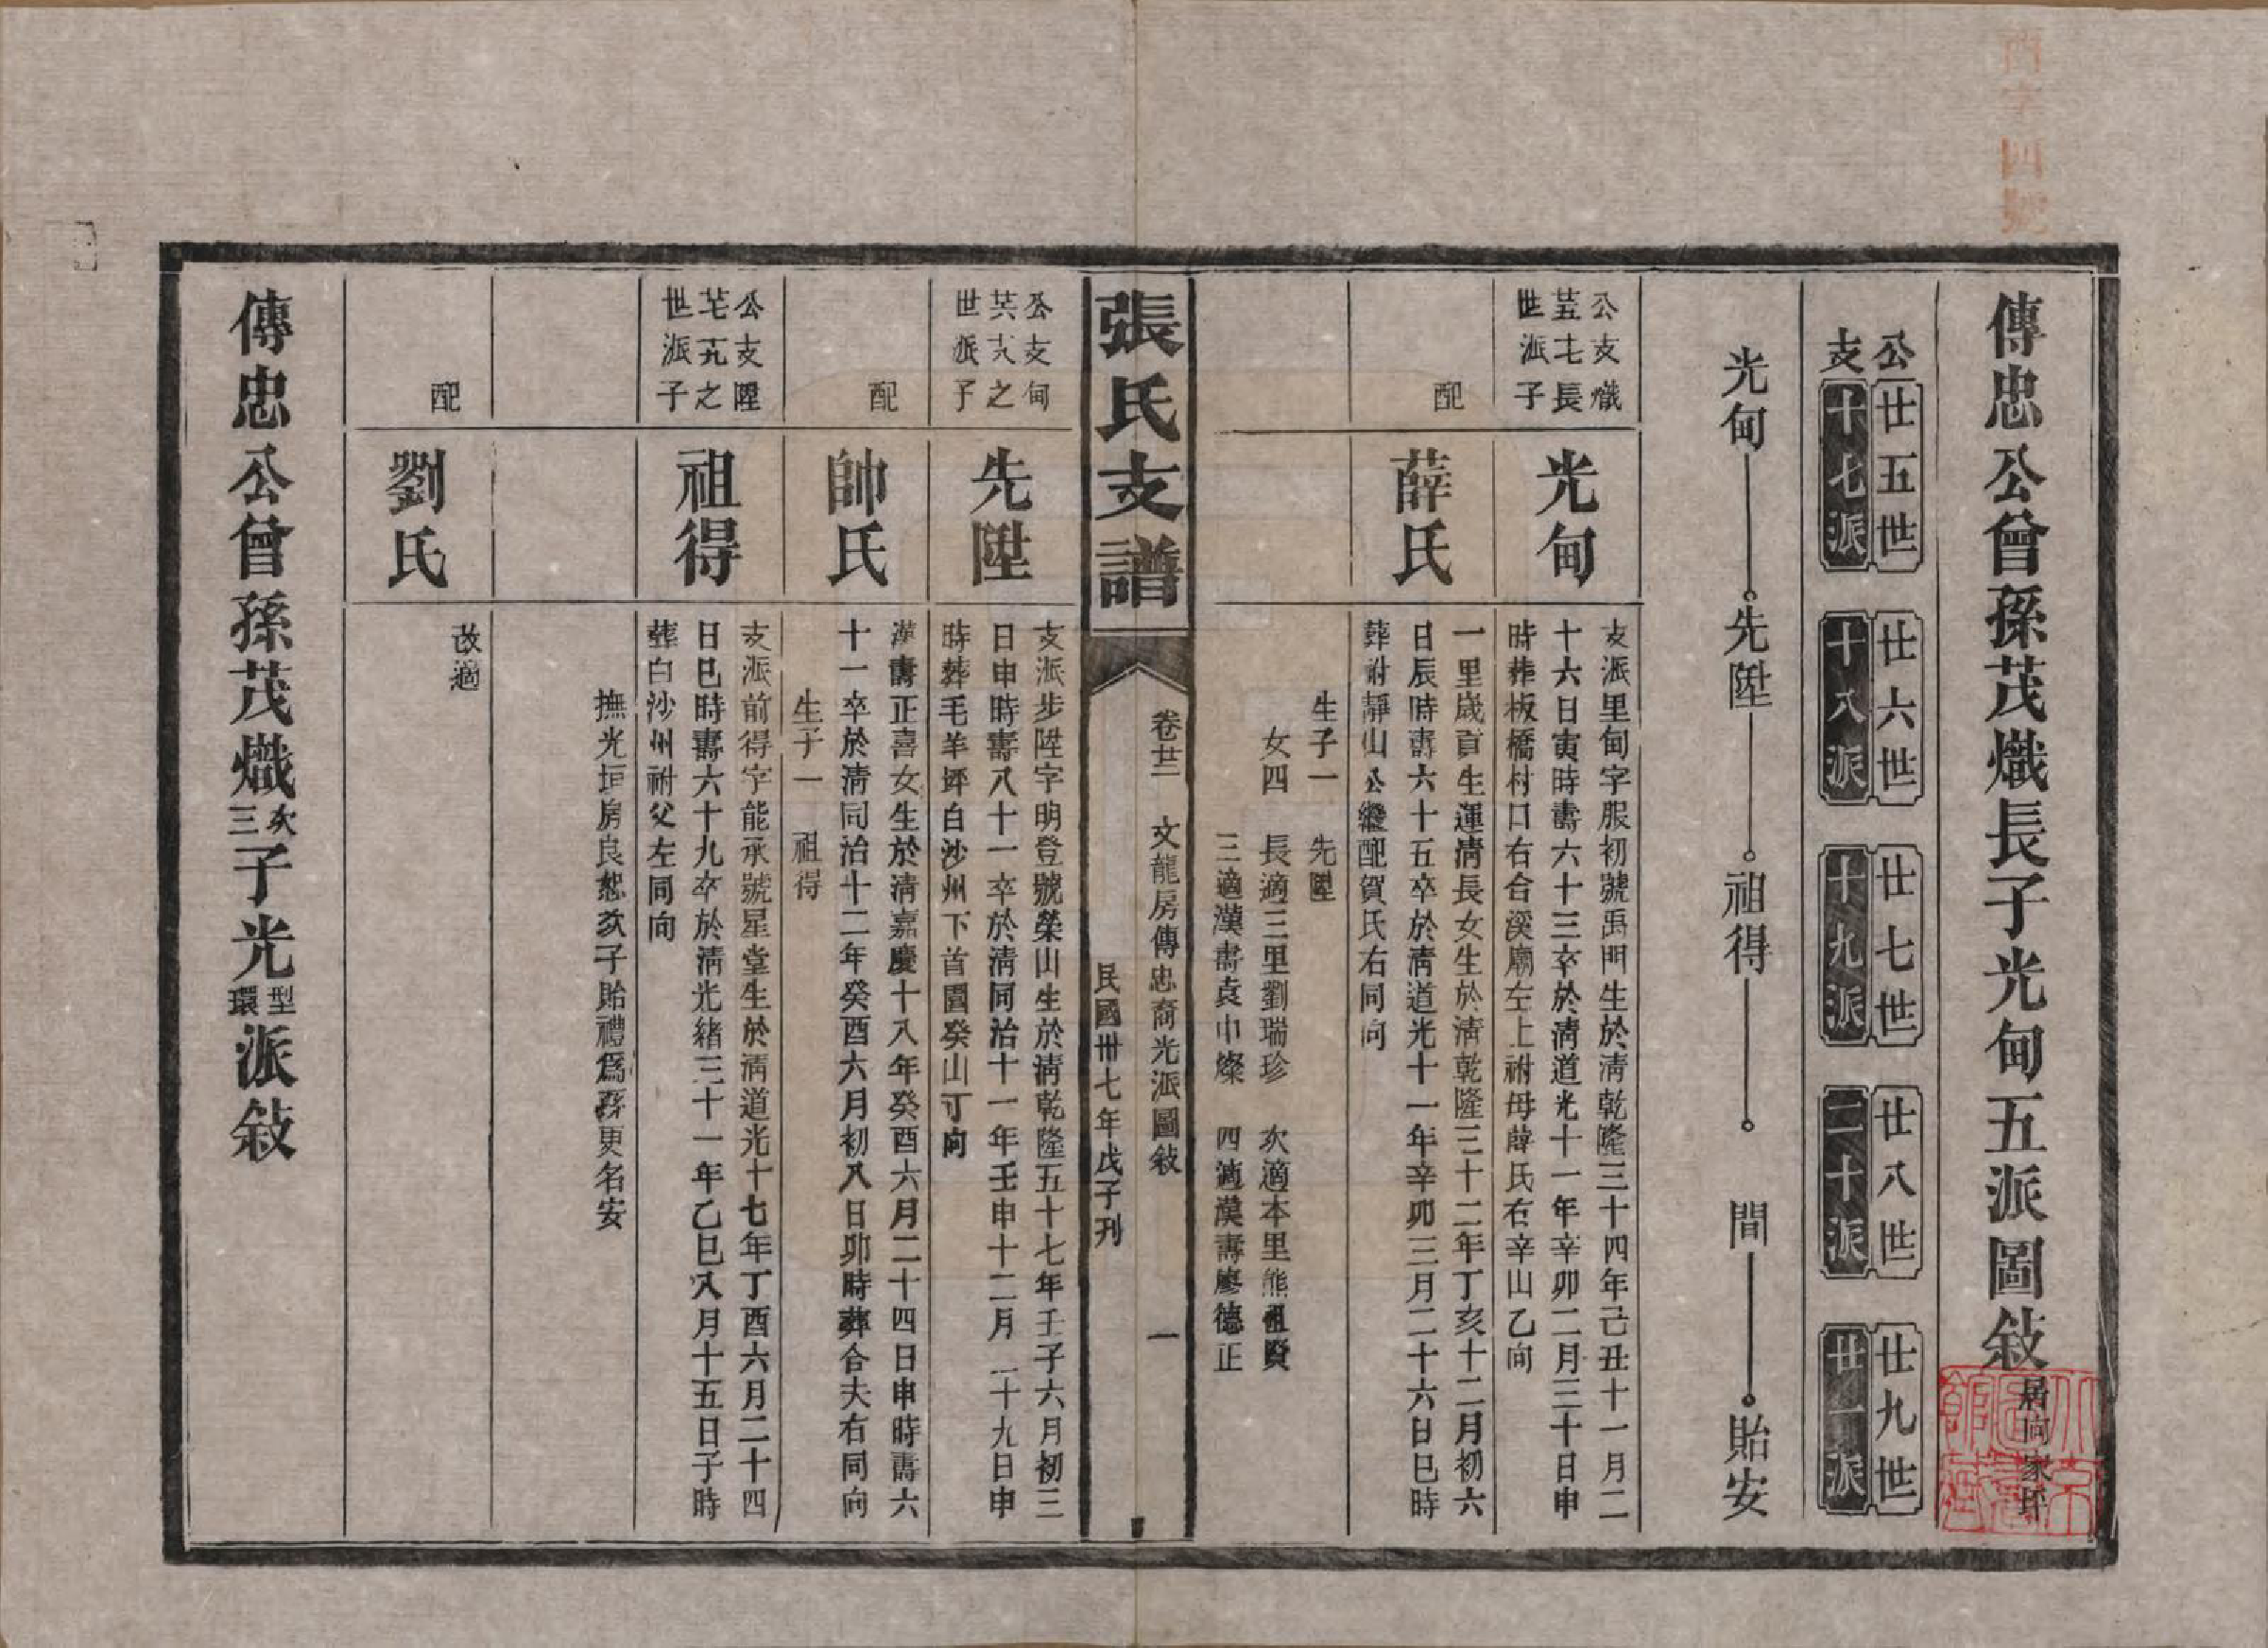 傳忠公曾孫茂熾長子光甸五派圖敍
居向家坪
公 廿五世 廿六世 廿七世 廿八世 廿九世
支 十七派 十八派 十九派 二十派 廿一派
光甸 先陞 祖得 間 貽安
公支熾
廿五十七長
世派子
光甸
支派里甸字服初號禹門生於清乾隆三十四年己丑十一月二
十六日寅時壽六十三卒於清道光十一年辛卯二月三十日申
時葬板橋村口右合溪廟左上祔母薛氏右辛山乙向
配
薛氏
一里歲貢生運清長女生於清乾隆三十二年丁亥十二月初六
日辰時壽六十五卒於清道光十一年辛卯三月二十六日巳時
葬祔靜山公繼配賀氏右同向
生子一 先陞
女四 長適三里劉瑞珍 次適本里熊祖賢
三適漢壽袁巾燦 四適漢壽廖德正
張氏支譜
卷廿三 文龍房傳忠裔光派圖敍 一
民國卅七年戊子刊
公支甸
廿六十八之
世派子
先陞
支派步陞字明登號榮山生於清乾隆五十七年壬子六月初三
日申時壽八十一卒於清同治十一年壬申十二月二十九日申
時葬毛羊坪白沙州下首園癸山丁向
配
帥氏
漢壽正喜女生於清嘉慶十八年癸酉六月二十四日申時壽六
十一卒於清同治十二年癸酉六月初八日卯時葬合夫右同向
生子一 祖得
公支陞
廿七十九之
世派子
祖得
支派前得字能承號星堂生於清道光十七年丁酉六月二十四
日巳時壽六十九卒於清光緒三十一年乙巳八月十五日子時
葬白沙州祔父左同向
撫光垣房良恕次子貽禮爲孫更名安
配
劉氏
改適
傳忠公曾孫茂熾次三子光型環派敍